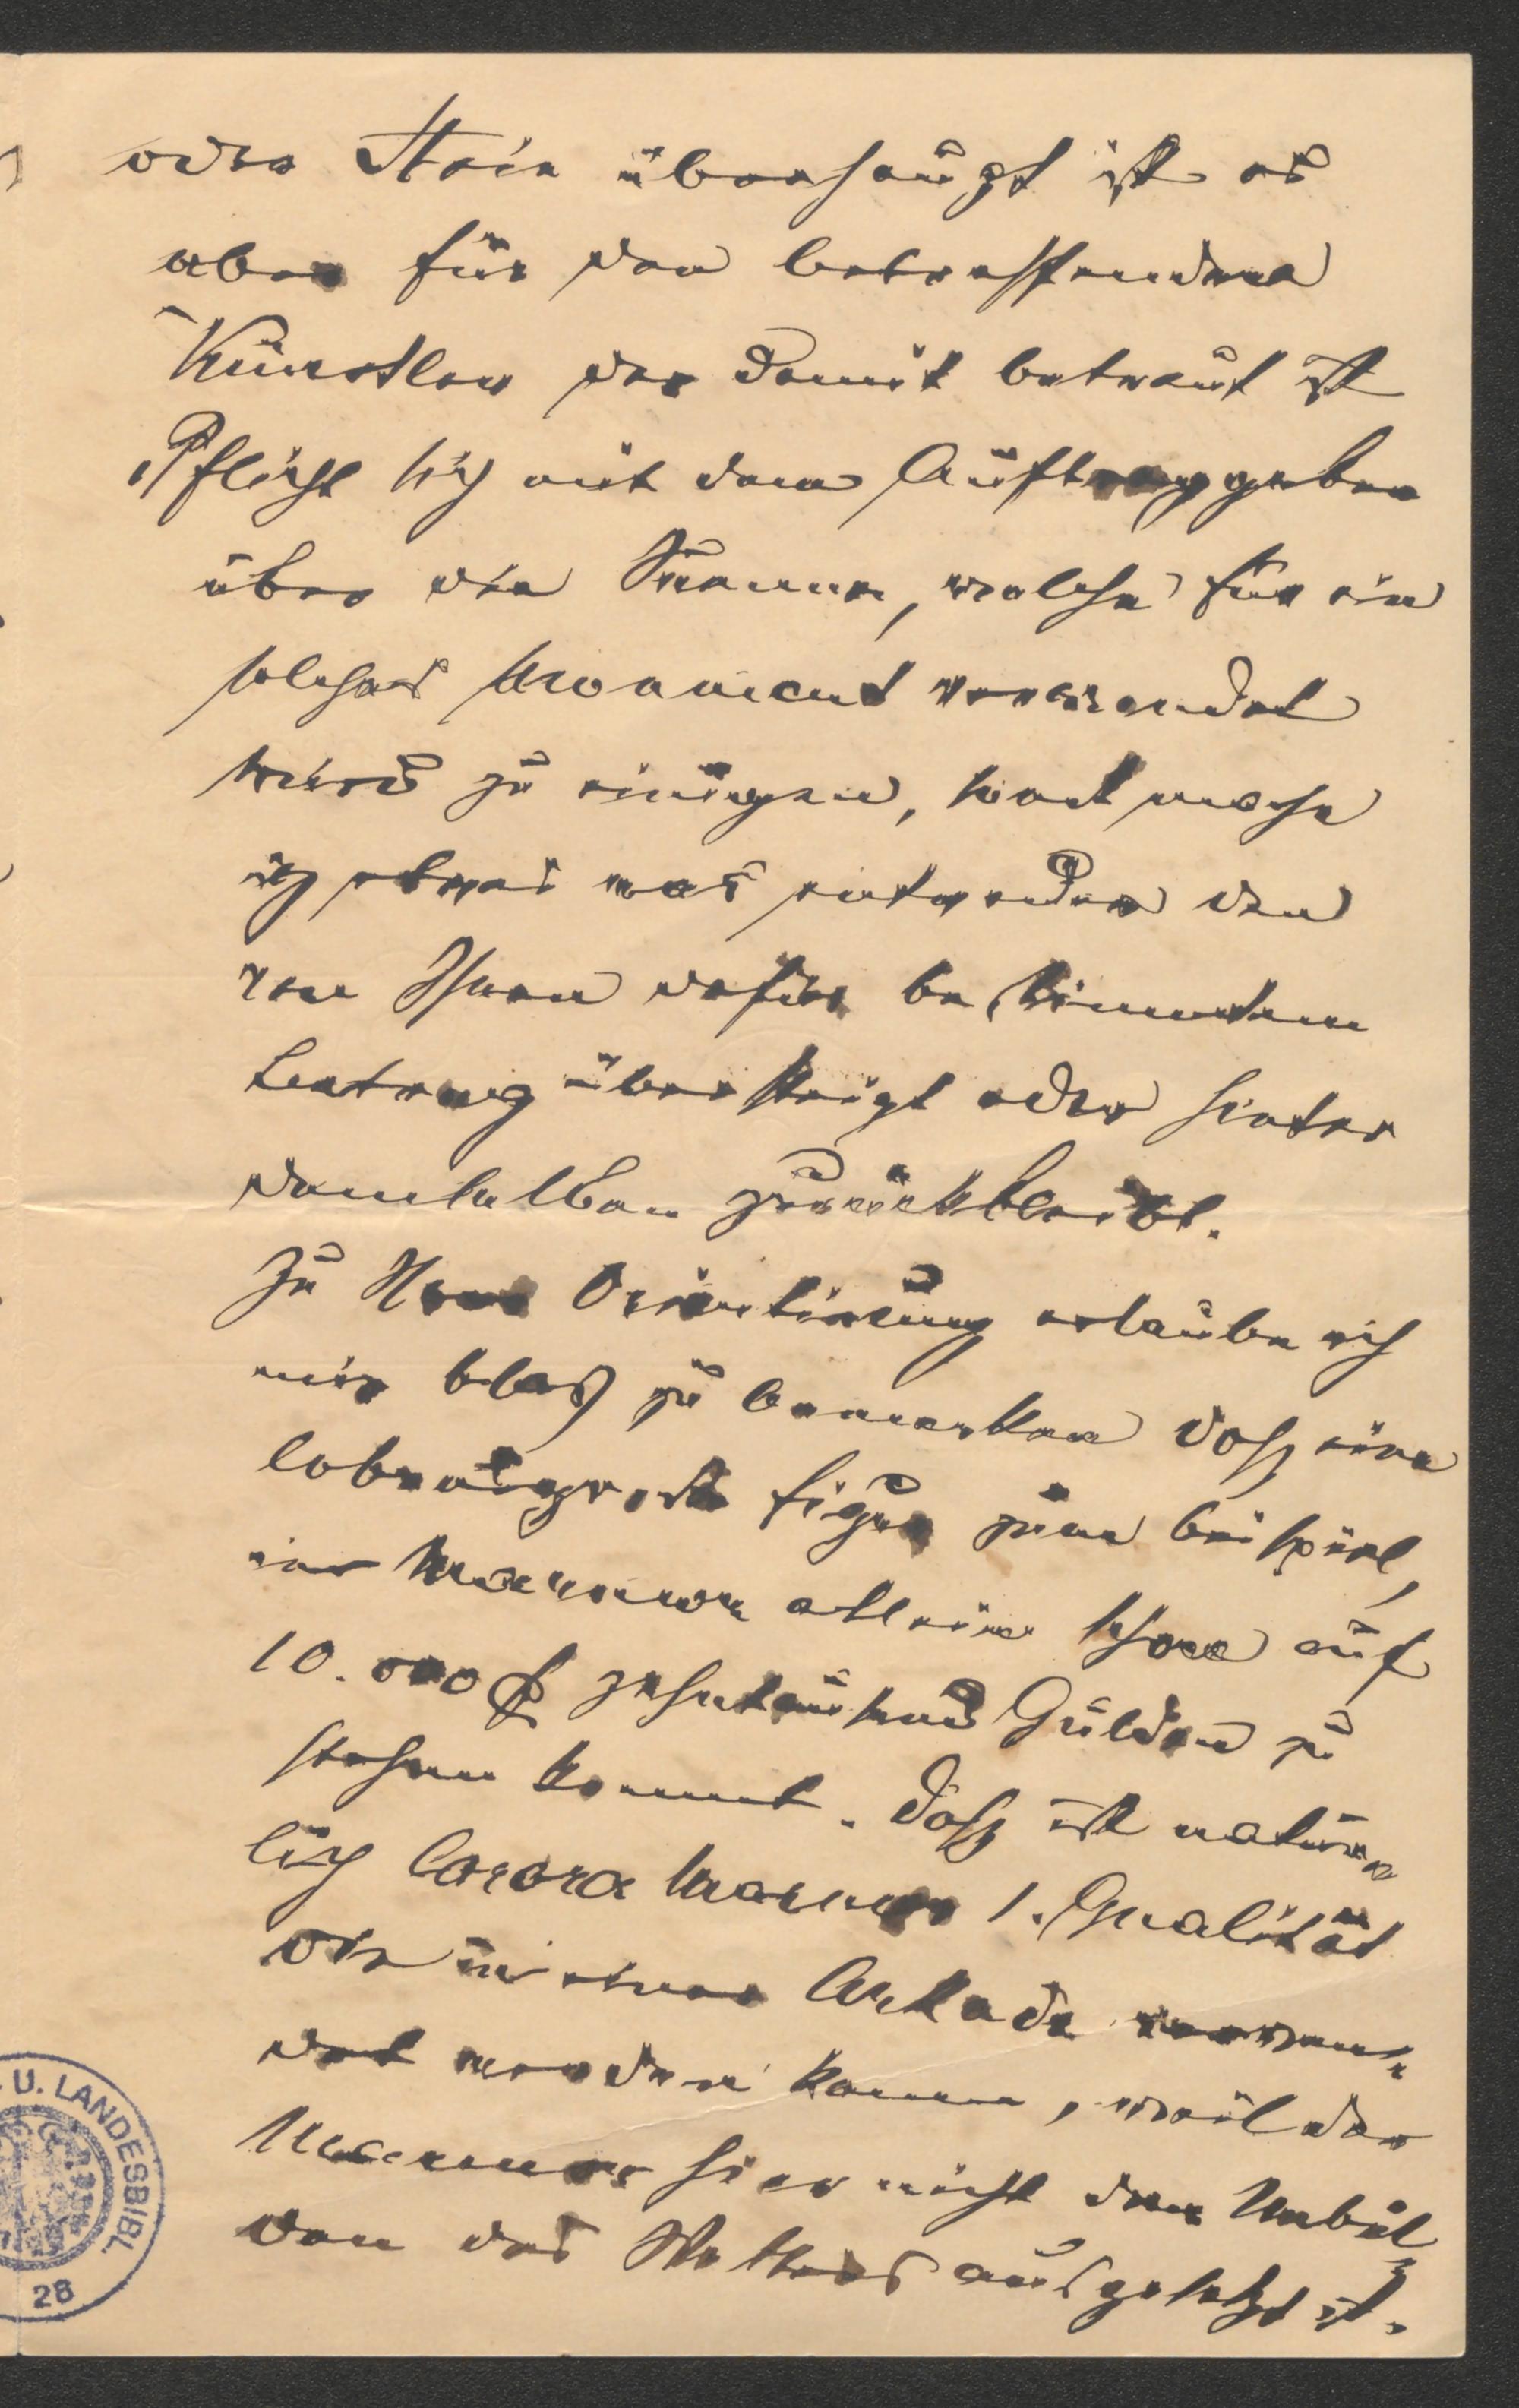 oder Stein überhaupt ist es
aber für den betreffenden
Künstler der damit betraut ist
Pflicht sich mit dem Auftraggeber
über die Summe, welche für ein
solches Monument verwendet
wird zu einigen, sonst mache
ich etwas was entweder den
von Ihnen dafür bestimmten
Betrag übersteigt oder hinter
demselben zurückbleibt.
Zu Ihrer Orientierung erlaube ich
mir blos zu bemerken dass eine
lebensgroße Figur zum Beispiel,
in Marmor allein schon auf
10.000 fl zehntausend Gulden zu
stehen kommt. Dass ist natür„
lich Carara Marmor 1. Qualität
die in einer Arkade verwen„
det werden kann, weil der
Marmor hier nicht den Unbil„
den des Wetters ausgesetzt ist.
U. LANDESBIBL.
28